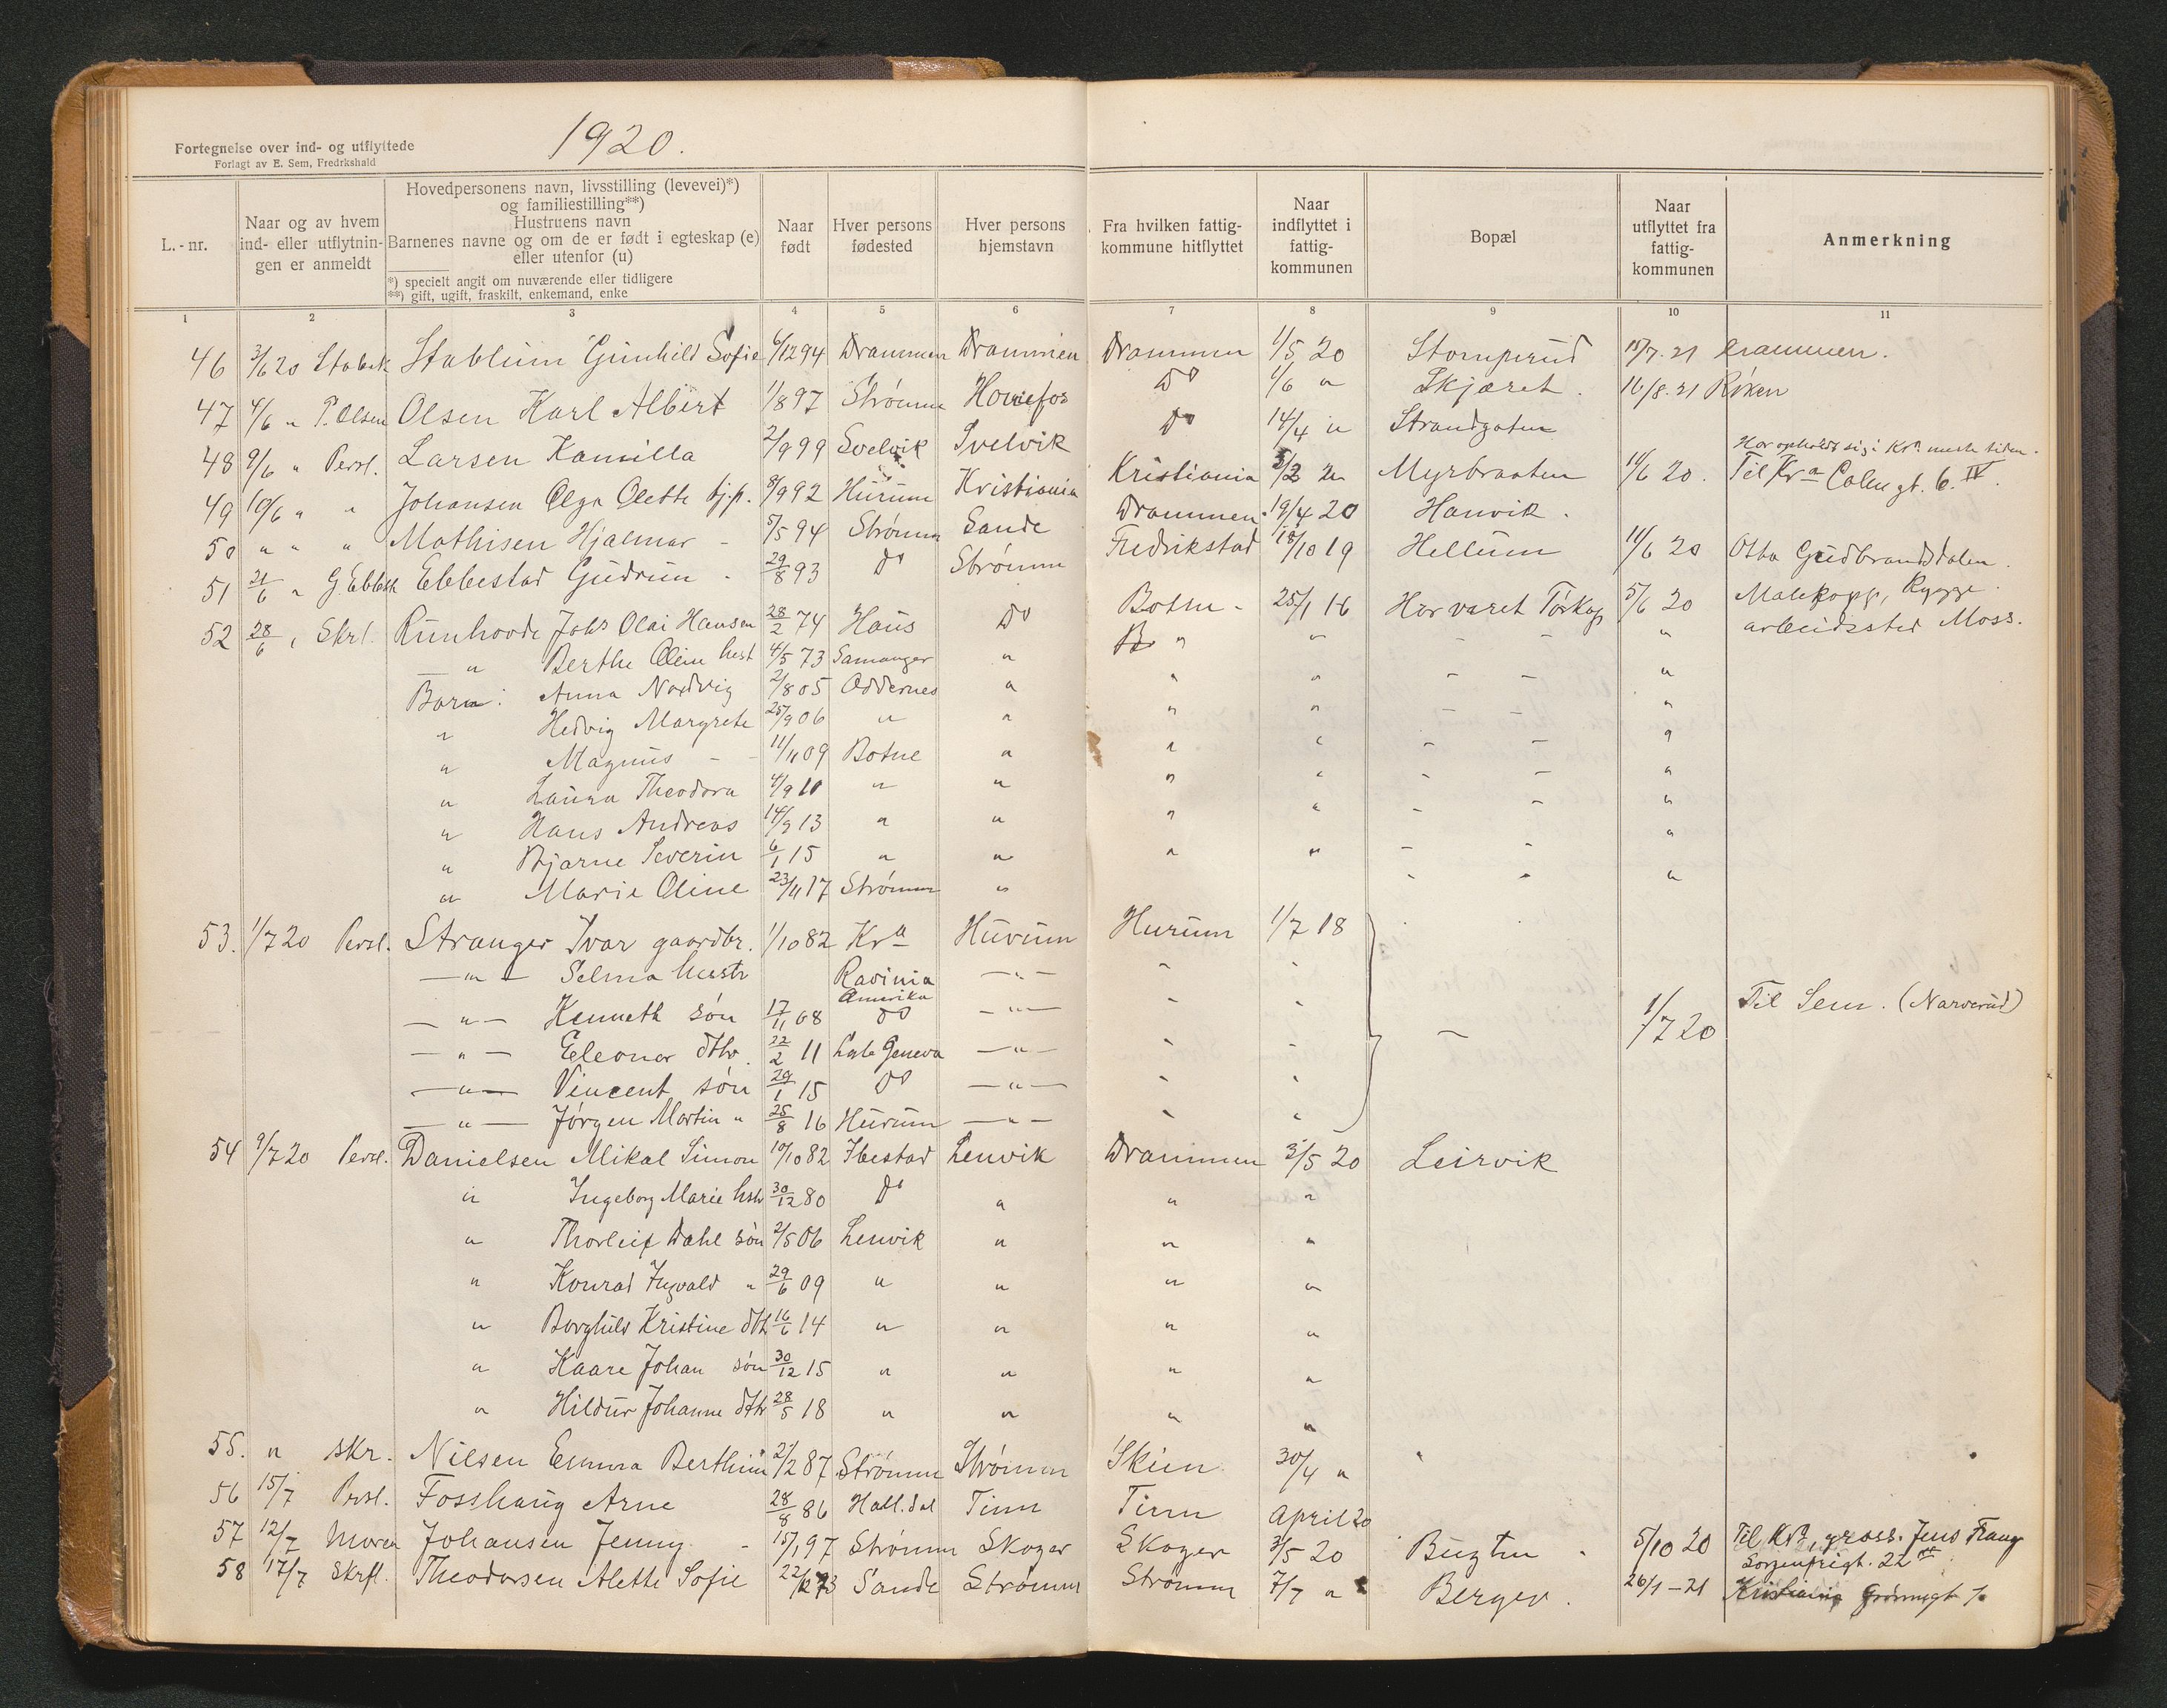 Fortegnelse over ind- og utflyttede
Forlagt av E. Sem, Fredrkshald
1920.
L.-nr.
Naar og av hvem ind- eller utflytningen er anmeldt
Hovedpersonens navn, livsstilling (levevei)*)
og familiestilling**)
Hustruens navn
Barnenes navne og om de er født i egteskap (e)
eller utenfor (u)
*) specielt angit om nuværende eller tidligere
**) gift, ugift, fraskilt, enkemand, enke
Naar født
Hver persons fødested
Hver persons hjemstavn
Fra hvilken fattigkommune hitflyttet
Naar indflyttet i fattigkommunen
Bopæl
Naar utflyttet fra fattigkommunen
Anmerkning
1 2 3 4 5 6 7 8 9 10 11
46 3/6 20 Stabæk Stablum Gunhild Sofie 6/12 94 Drammen Drammen Drammen 1/5 20 Stomperud 15/7.21 Drammen.
47 4/6 " P. Olsen Olsen Karl Albert 1/8 97 Strømm Hønefos Do 1/6 " Skjæret. 16/8.21 Røken
48 9/6 " Persl. Larsen Kamilla 2/9 99 Svelvik Svelvik Do 14/4 " Strandgaten
Har opholdt sig i Kra meste tiden.
49 10/6 " " Johansen Olga Olette tj.p. 8/9 92 Hurum Kristiania Kristiania 5/3 20 Myrbraaten 11/6 20. Til Kra Calmgt. 6. IV.
50 " " " Mathisen Hjalmar - 5/5 94 Strømm Sande Drammen. 19/4 20 Hanvik.
51 21/6 " G. Ebbest Ebbestad Gudrun - 29/8 93 Do Strømm Fredrikstad 18/10 19 Hellum 11/6 20 Otta Gudbrandsdalen.
52 28/6 " Skrl. Runhovde Johs Olai Hansen 28/2 74 Haus Do Botne - 25/1 16 Har været Tørkop 5/6 20 Malepopp, Rygge
arbeidssted Moss.
" Berthe Oline hust 4/5 73 Samanger " " " - - "
Barn: Anna Nordvig 2/8 05 Oddernes " " " - - "
" Hedvig Margrete 25/9 06 " " " " - - "
" Magnus - - 11/11 09 Botne " " " - - "
" Laura Theodora 4/9 10 " " " " - - "
" Hans Andreas 14/9 13 " " " " - - "
" Bjarne Severin 6/1 15 " " " " - - "
" Marie Oline 23/11 17 Strømm " " - - "
53. 1/7 20 Persl. Stranger Ivar gaardbr. 1/10 82 Kra Hurum Hurum 1/7 18
— " — Selma hustr Ravinia — " — " "
Amerika
— " — Kenneth søn 17/11 08 Do — " — " " 1/7 20 Til Sem. (Narverud)
— " — Eleonor dtr. 22/2 11 Lake Geneva — " — " " —
— " — Vincent søn 29/1 15 Do — " — " "
— " — Jørgen Martin " 25/8 16 Hurum — " — " "
54 9/7 20 Persl. Danielsen Mikal Simon 10/10 82 Ibestad Lenvik Drammen 3/5 20 Leirvik
" Ingeborg Marie hstr 30/12 80 Do " " "
" Thorleif Dahl søn 2/5 06 Lenvik " " "
" Konrad Ingvald " 29/6 09 " " " "
" Borghild Kristine dtr 16/6 14 " " " "
" Kaare Johan søn 30/12 15 " " " "
" Hildur Johanne dttr 28/5 18 " " " "
55. " skr. Nilsen Emma Berthine 21/2 87 Strømm Strømm Skien 30/4 "
56 15/7 Persl. Fosshaug Arne 28/8 86 Hall.dal Tinn Tinn April 20
57 12/7 Moren Johansen Jenny - 15/1 97 Strømm Skoger Skoger 3/5 20 Bugten. 5/10 20 Til Kra, gross. Jens Traug
Sorgenfrigt. 22
58 17/7 Skrftl. Theodorsen Alette Sofie 22/12 73 Sande Strømm Strømm 7/7 " Berger. 26/1-21 Kristiania Grønnegt